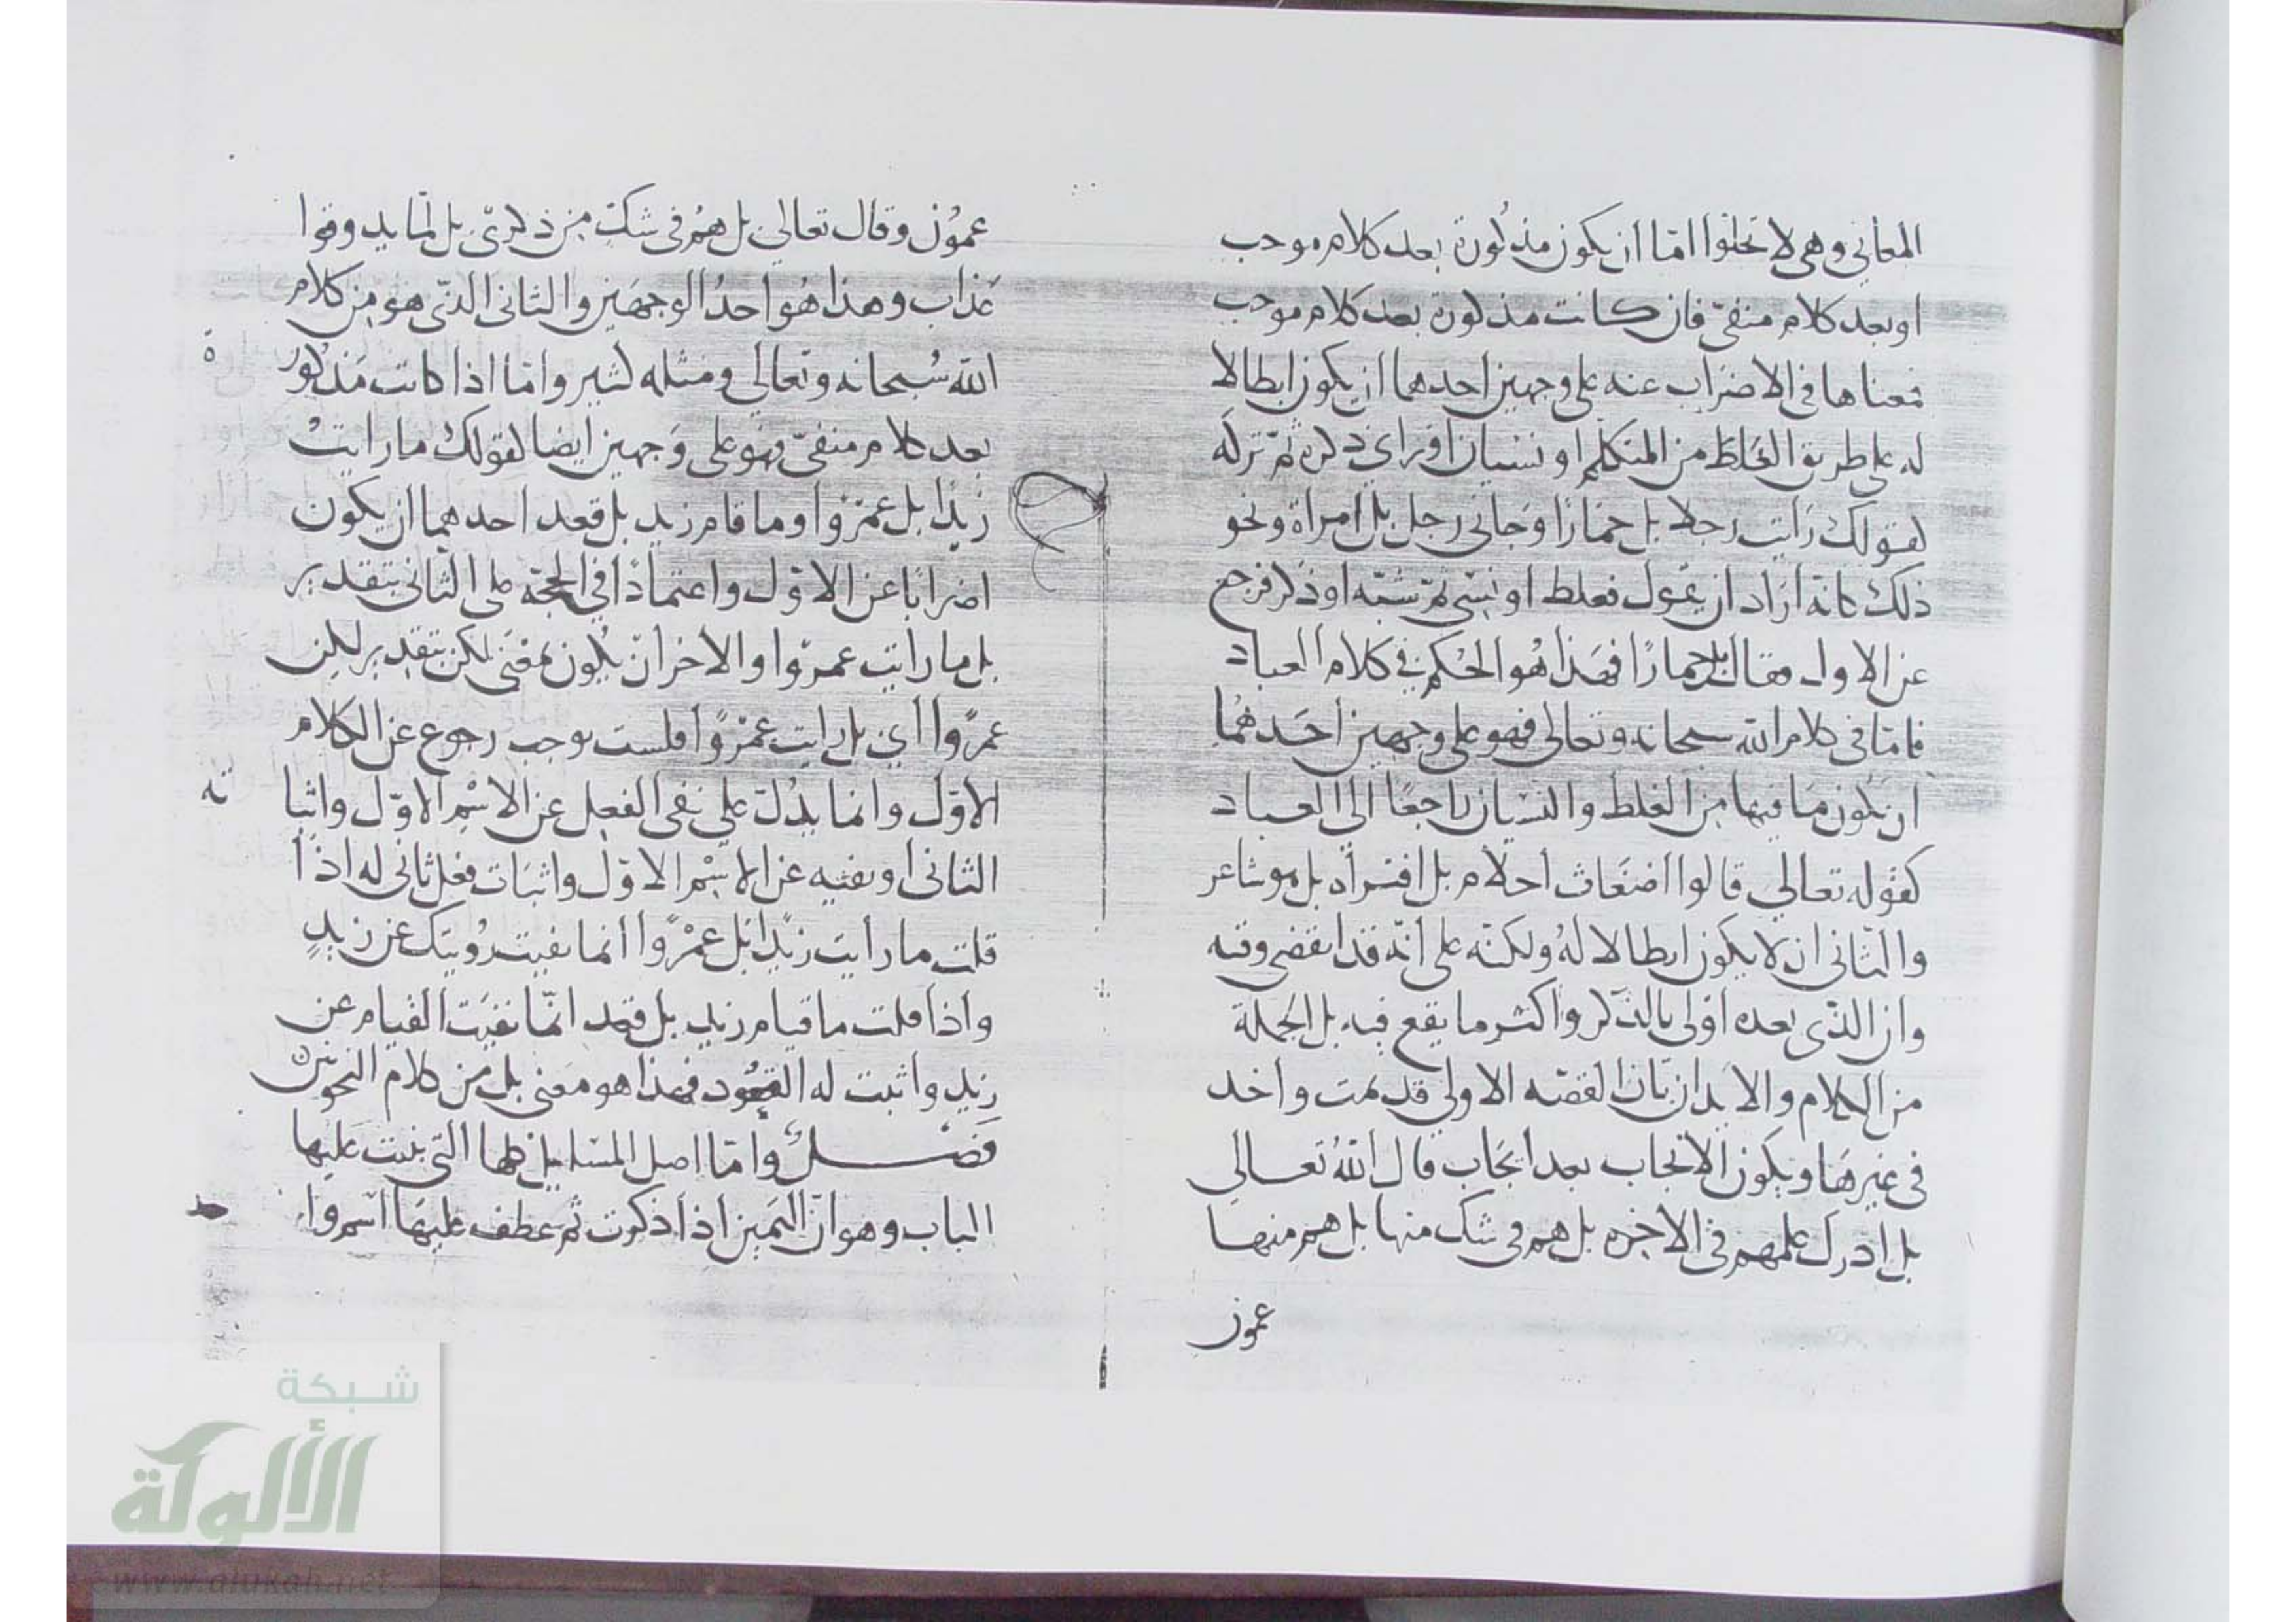 المعاني وهي لا تخلوا امّا ان يكون مذكورة بعد كلام موجب
او بعد كلام منفيّ فان كانت مذكورة بعد كلام موجب
فمعناها في الاضراب عنه على وجهين احدهما ان يكون ابطالا
له على طريق الغلط من المتكلم او نسيان او رأي ذكره ثم تركه
كقولك رايت رجلا بل حمارًا وجاني رجل بل امراة ونحو
ذلك كانه اراد ان يقول فغلط او نسي ثم تنبّه او ذكر فرجع
عن الاول فقال بل حمارًا فهذا هُو الحُكم في كلام العباد
فامّا في كلام الله سبحانه وتعالى فهو على وجهين احدهُما
ان يكون ما فيها من الغلط والنسيان راجعًا الي العباد
كقوله تعالي قالوا اضغاث احلام بل افتراه بل هو شاعر
والثاني ان لا يكون ابطالا لهُ ولكنّه على انّه قد انقضى وقته
وان الذّي بعده اولى بالذكر واكثر ما يقع فيه بل الجملة
من الكلام والايذان بان القصّه الاولي قد تمت واخذ
في غيرهَا ويكون الايجاب بعد ايجاب قال اللهُ تعالي
بل ادرك علمهم في الاخره بل هم في شك منها بل هم منها
عمون
عمُون وقال تعالي بل هُم في شكّ من ذكريّ بل لمّا يدوقوا
عَذاب وهذا هُو احدُ الوجهَين والثاني الذّي هو مِن كلام
الله سُبحانه وتعالي ومثله كثير وامّا اذا كانت مَذكور
ة
بعد كلام منفيّ فهو على وَجهين ايضا كقولك ما رايتْ
زيدًا بل عمرْوا وما قام زيد بل قعد احدهما ان يكون
اضرابًا عن الاوّل واعتمادًا في الحجّة على الثاني بتقدير
بل ما رايت عمرّوا والاخر انّ يكون بمعنَي لكن بتقدير لكن
عمرًوا أي بل رايت عمْرًوا فلست توجب رجوع عن الكلام
الاوّل وانما يدُلّ علي نفى الفعِل عن الاسْمِ الاوّل واثبا
ته
الثانى او نفيه عن الاسْم الاوّل واثبَات فعل ثانى له اذا
قلت ما رأيت زيدًا بل عمْرًوا انما نفيت رُويتك عن زيدٍ
واذا قلت ما قيام زيد بل قعد انّما نفيَت القيام عن
زيد واثبت له القعُود فهذا هو معَنى بل من كلام النحويين
فَصْل وامّا اصل المسّايل كلها التي بنيت عليها
الباب وهو انّ اليمين اذا ذكرت ثم عطف عليهَا اسّم وا
شبكة
الألوكة
www.alukah.net